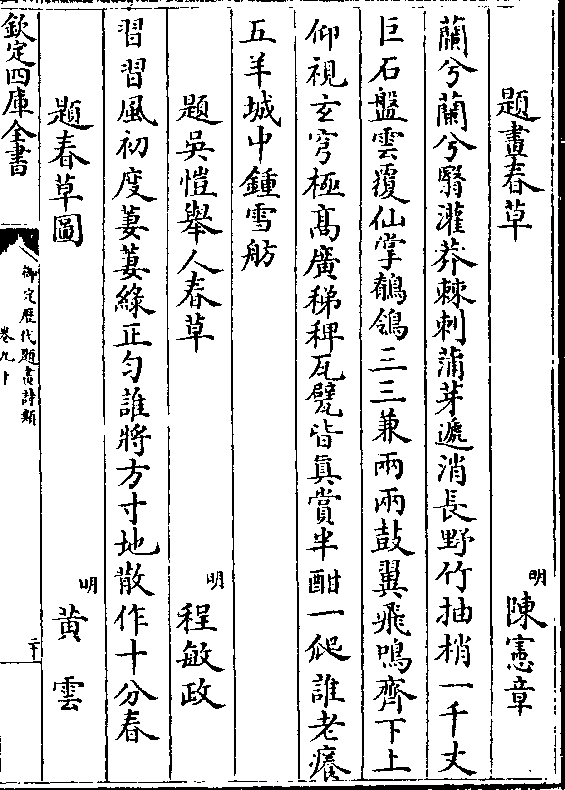 題畫春草 明 陳憲章
蘭兮蘭兮翳灌莽棘刺蒲芽遞消長野竹抽梢一千丈
巨石盤雲覆仙掌鶺鴒三三兼兩兩鼓翼飛鳴齊下上
仰視玄穹極髙廣稊稗瓦甓皆真賞半酣一爬誰老癢
五羊城中鍾雪舫
題吳愷舉人春草 明 程敏政
習習風初度萋萋綠正勻誰將方寸地散作十分春
題春草圖 明 黄雲
欽定四庫全書 御定歷代題畫詩類 卷九十 二十